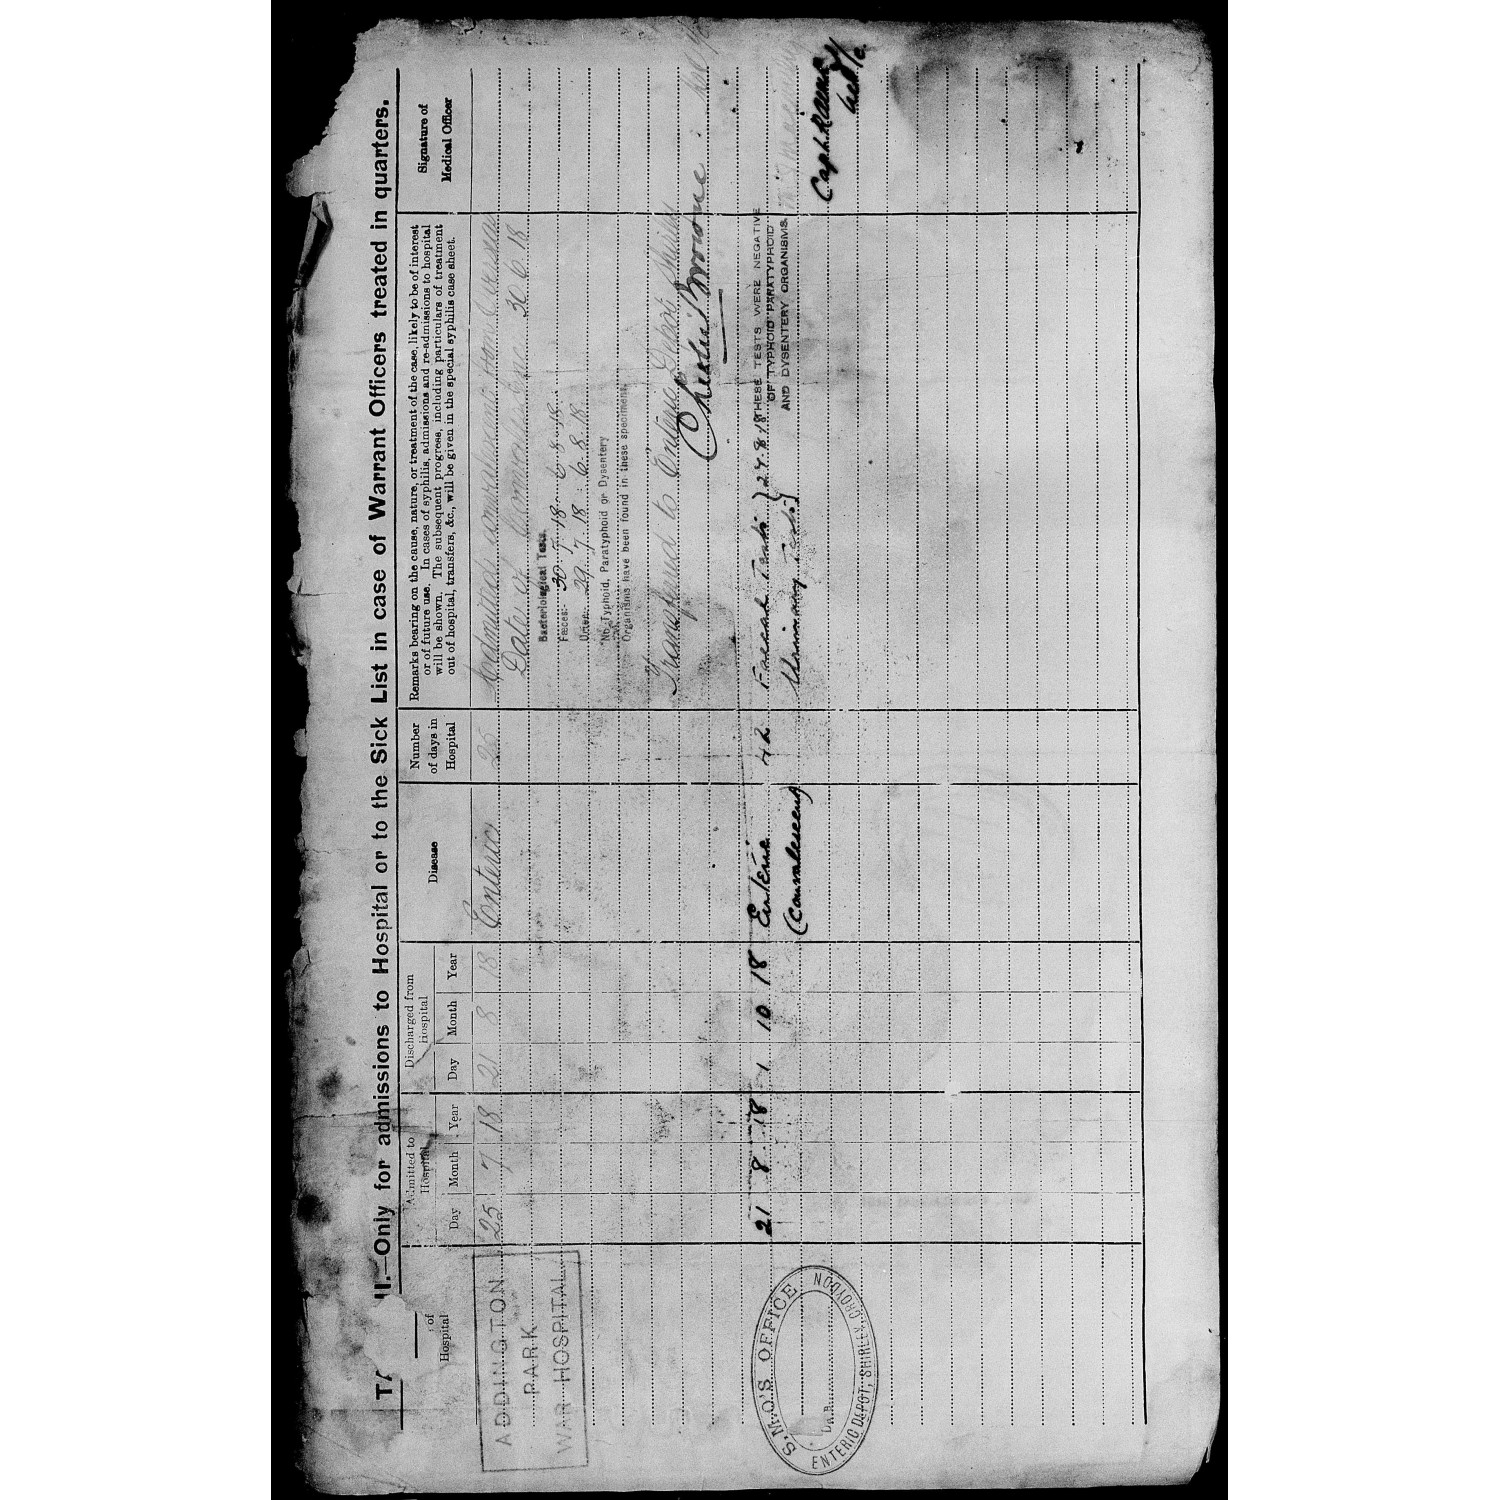 II.—Only for admissions to Hospital or to the Sick List in case of Warrant Officers treated in quarters.
of
Hospital
Admitted to
Hospital
Day Month Year
Discharged from
Hospital
Day Month Year
Disease
Number
of days in
Hospital
Remarks bearing on the cause, nature, or treatment of the case, likely to be of interest
or of future use. In cases of syphilis, admissions and re-admissions to hospital
will be shown. The subsequent progress, including particulars of treatment
out of hospital, transfers, &c., will be given in the special syphilis case sheet.
Signature of
Medical Officer
ADDINGTON
PARK
WAR HOSPITAL
25 7 18 21 8 18 Enteric
Admitted convalescent from Overseas
Date of 30 6 18
Bacteriological Tests.
Fæces:- 30. 7. 18. 6 8 18
Urine: 29 7 18 6. 8. 18
No Typhoid, Paratyphoid or Dysentery
Organisms have been found in these specimens.
Transferred to Enteric Depot Shirley
Browne
S.M.O'S OFFICE
DATE
ENTERIC DEPOT, SHIRLEY, CROYDON
21 8 18 1 10 18 Enteric 42 Faecal Tests } 27.8.18 THESE TESTS WERE NEGATIVE
OF TYPHOID PARATYPHOID
(Convalescent) Urinary Tests AND DYSENTERY ORGANISMS.
Capt. R.A.M.C.